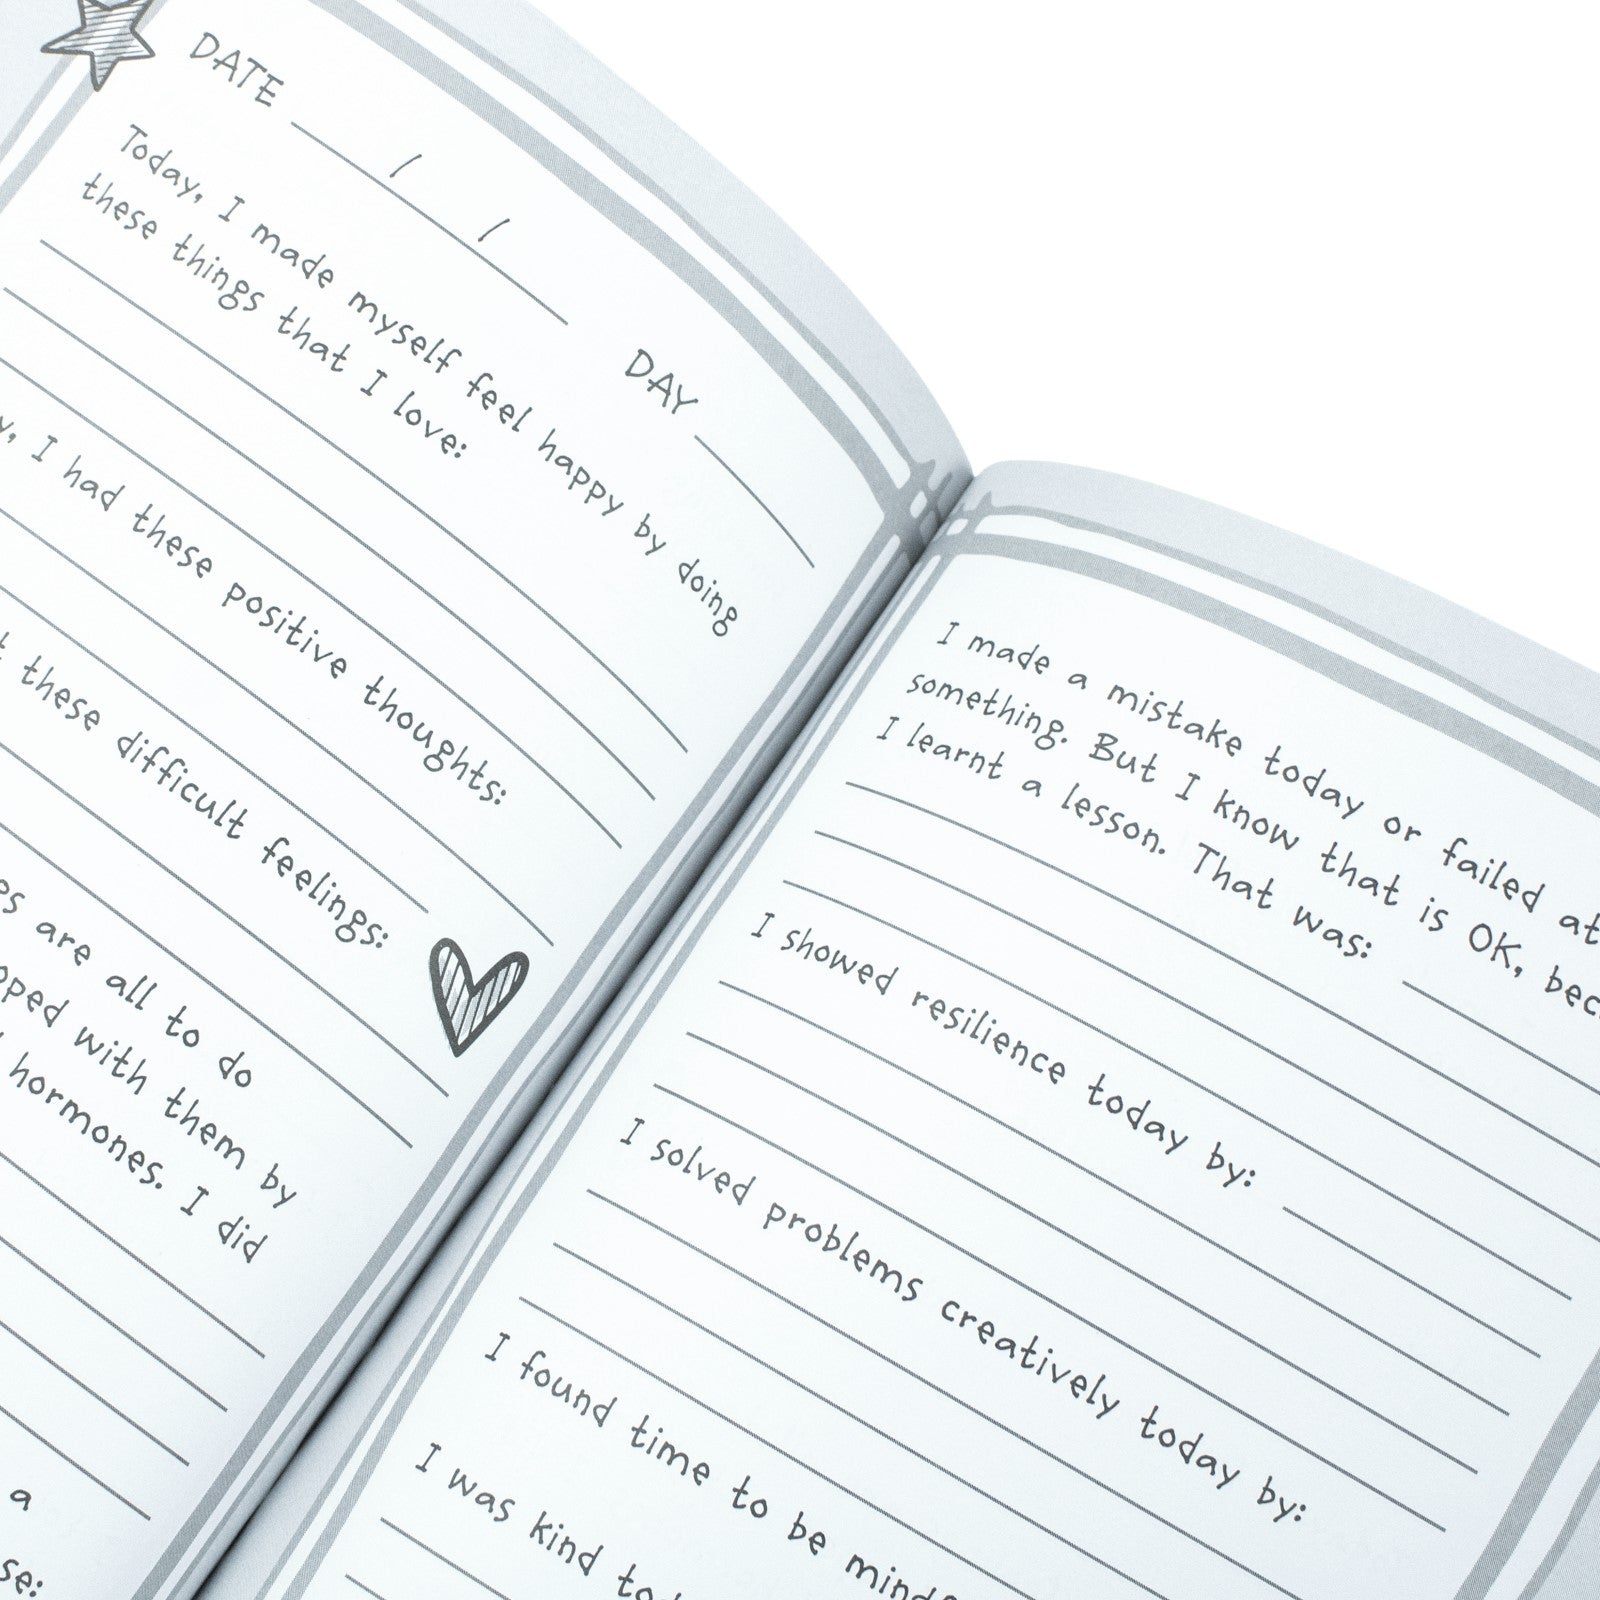 DATE / / DAY
Today, I made myself feel happy by doing
these things that I love:
I had these positive thoughts:
these difficult feelings:
are all to do
with them by
hormones. I did
a
I made a mistake today or failed at
something. But I know that is OK,
I learnt a lesson. That was:
I showed resilience today by:
I solved problems creatively today by:
I found time to be
I was kind